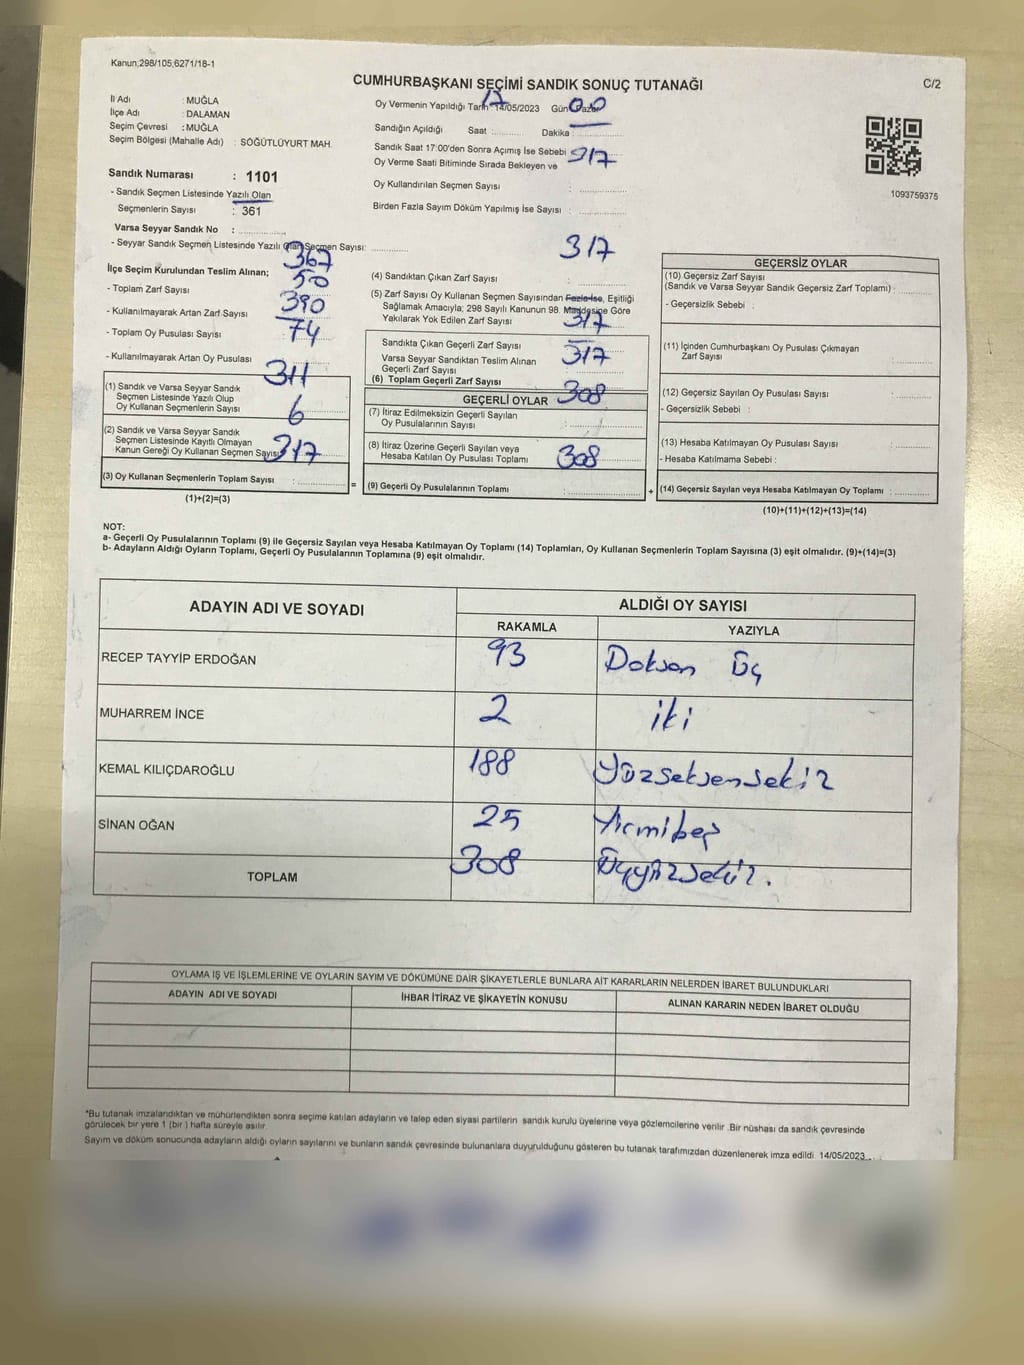 Kanun;298/105,6271/18-1
CUMHURBAŞKANI SEÇİMİ SANDIK SONUÇ TUTANAĞI
C/2
İl Adı : MUĞLA
İlçe Adı : DALAMAN
Seçim Çevresi : MUĞLA
Seçim Bölgesi (Mahalle Adı) : SÖĞÜTLÜYURT MAH.
Sandık Numarası : 1101
- Sandık Seçmen Listesinde Yazılı Olan
Seçmenlerin Sayısı : 361
Varsa Seyyar Sandık No :
- Seyyar Sandık Seçmen Listesinde Yazılı Olan Seçmen Sayısı:
Oy Vermenin Yapıldığı Tarih 14/05/2023 Gün Pazar
17 00
Sandığın Açıldığı Saat : Dakika :
Sandık Saat 17:00'den Sonra Açımış İse Sebebi
Oy Verme Saati Bitiminde Sırada Bekleyen ve
317
Oy Kullandırılan Seçmen Sayısı :
Birden Fazla Sayım Döküm Yapılmış İse Sayısı :
1093759375
İlçe Seçim Kurulundan Teslim Alınan;
367
- Toplam Zarf Sayısı
50
- Kullanılmayarak Artan Zarf Sayısı
390
- Toplam Oy Pusulası Sayısı
74
- Kullanılmayarak Artan Oy Pusulası
311
(1) Sandık ve Varsa Seyyar Sandık
Seçmen Listesinde Yazılı Olup
Oy Kullanan Seçmenlerin Sayısı
6
(2) Sandık ve Varsa Seyyar Sandık
Seçmen Listesinde Kayıtlı Olmayan
Kanun Gereği Oy Kullanan Seçmen Sayısı
317
(3) Oy Kullanan Seçmenlerin Toplam Sayısı :
(1)+(2)=(3)
317
(4) Sandıktan Çıkan Zarf Sayısı :
(5) Zarf Sayısı Oy Kullanan Seçmen Sayısından Fazla İse, Eşitliği
Sağlamak Amacıyla; 298 Sayılı Kanunun 98. Maddesine Göre
Yakılarak Yok Edilen Zarf Sayısı
317
Sandıkta Çıkan Geçerli Zarf Sayısı
317
Varsa Seyyar Sandıktan Teslim Alınan
Geçerli Zarf Sayısı
(6) Toplam Geçerli Zarf Sayısı
308
GEÇERLİ OYLAR
(7) İtiraz Edilmeksizin Geçerli Sayılan
Oy Pusulalarının Sayısı :
(8) İtiraz Üzerine Geçerli Sayılan veya
Hesaba Katılan Oy Pusulası Toplamı
308
= (9) Geçerli Oy Pusulalarının Toplamı : +
GEÇERSİZ OYLAR
(10) Geçersiz Zarf Sayısı
(Sandık ve Varsa Seyyar Sandık Geçersiz Zarf Toplamı) :
- Geçersizlik Sebebi :
(11) İçinden Cumhurbaşkanı Oy Pusulası Çıkmayan
Zarf Sayısı :
(12) Geçersiz Sayılan Oy Pusulası Sayısı :
- Geçersizlik Sebebi :
(13) Hesaba Katılmayan Oy Pusulası Sayısı :
- Hesaba Katılmama Sebebi :
(14) Geçersiz Sayılan veya Hesaba Katılmayan Oy Toplamı :
(10)+(11)+(12)+(13)=(14)
NOT:
a- Geçerli Oy Pusulalarının Toplamı (9) ile Geçersiz Sayılan veya Hesaba Katılmayan Oy Toplamı (14) Toplamları, Oy Kullanan Seçmenlerin Toplam Sayısına (3) eşit olmalıdır. (9)+(14)=(3)
b- Adayların Aldığı Oyların Toplamı, Geçerli Oy Pusulalarının Toplamına (9) eşit olmalıdır.
ADAYIN ADI VE SOYADI ALDIĞI OY SAYISI
RAKAMLA YAZIYLA
RECEP TAYYİP ERDOĞAN 93 Doksan Üç
MUHARREM İNCE 2 iki
KEMAL KILIÇDAROĞLU 188 Yüzseksensekiz
SİNAN OĞAN 25 Yirmibeş
TOPLAM 308 Üçyüzsekiz.
OYLAMA İŞ VE İŞLEMLERİNE VE OYLARIN SAYIM VE DÖKÜMÜNE DAİR ŞİKAYETLERLE BUNLARA AİT KARARLARIN NELERDEN İBARET BULUNDUKLARI
ADAYIN ADI VE SOYADI İHBAR İTİRAZ VE ŞİKAYETİN KONUSU ALINAN KARARIN NEDEN İBARET OLDUĞU
*Bu tutanak imzalandıktan ve mühürlendikten sonra seçime katılan adayların ve talep eden siyasi partilerin sandık kurulu üyelerine veya gözlemcilerine verilir .Bir nüshası da sandık çevresinde
görülecek bir yere 1 (bir ) hafta süreyle asılır.
Sayım ve döküm sonucunda adayların aldığı oyların sayılarını ve bunların sandık çevresinde bulunanlara duyurulduğunu gösteren bu tutanak tarafımızdan düzenlenerek imza edildi. 14/05/2023